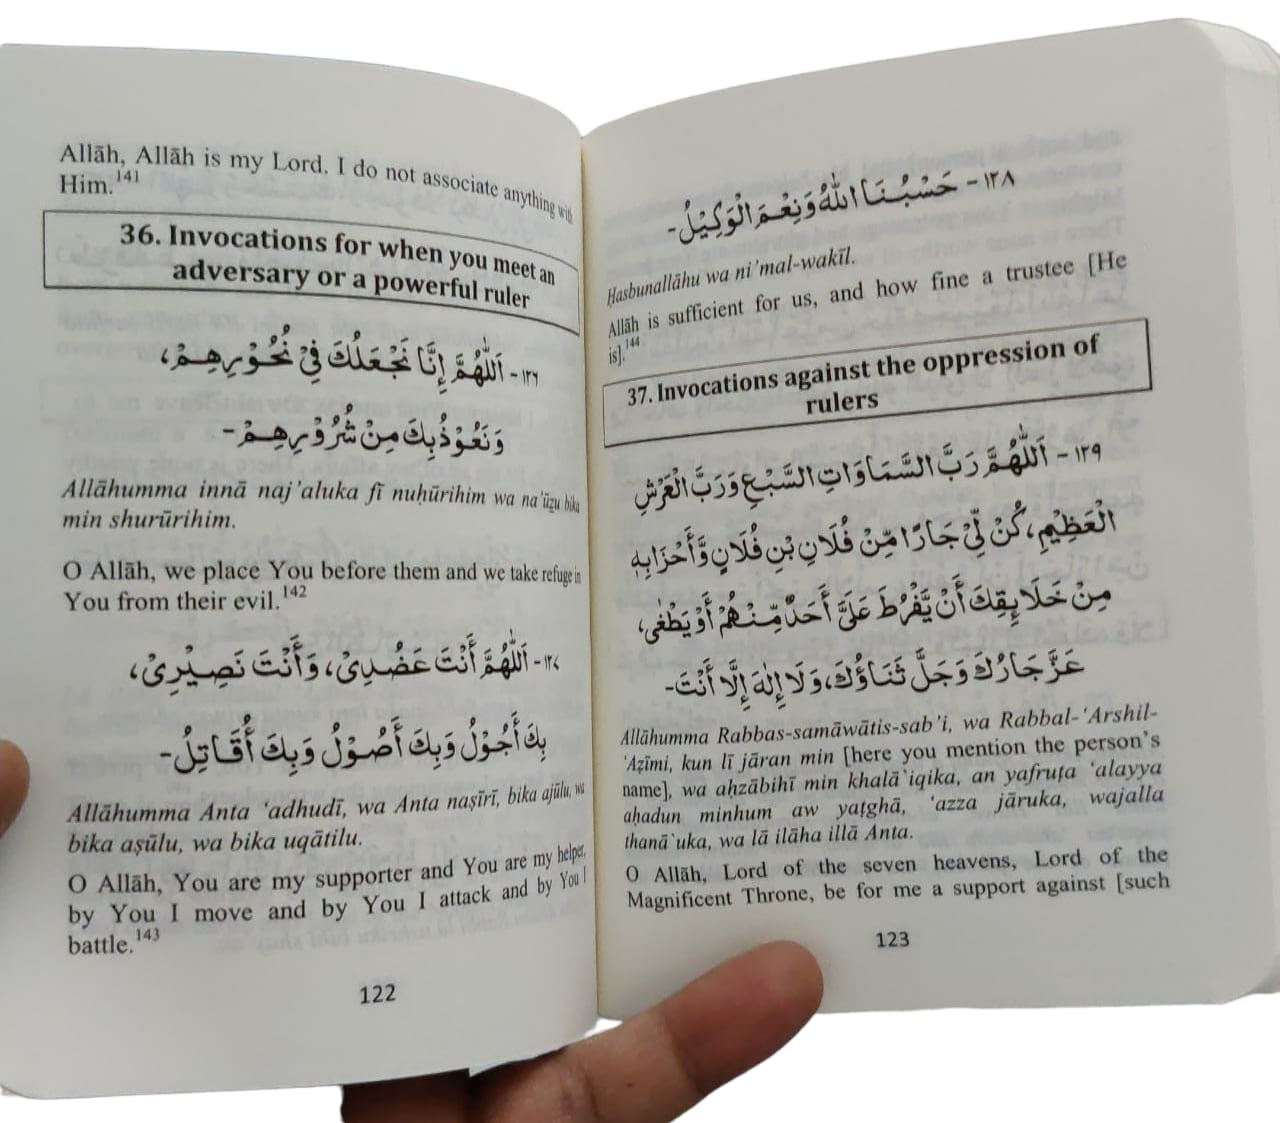 Allāh, Allāh is my Lord. I do not associate anything with
Him.141
36. Invocations for when you meet an
adversary or a powerful ruler
١٢٦- اَللّٰهُمَّ إِنَّا نَجْعَلُكَ فِيْ نُحُوْرِهِمْ،
وَنَعُوْذُبِكَ مِنْ شُرُوْرِهِمْ-
Allāhumma innā naj'aluka fī nuḥūrihim wa na'ūzu bika
min shurūrihim.
O Allāh, we place You before them and we take refuge in
You from their evil.142
١٢٧- اَللّٰهُمَّ أَنْتَ عَضُدِىْ، وَأَنْتَ نَصِيْرِىْ،
بِكَ أَجُوْلُ وَبِكَ أَصُوْلُ وَبِكَ أُقَاتِلُ-
Allāhumma Anta ‘adhudī, wa Anta naṣīrī, bika ajūlu, wa
bika aṣūlu, wa bika uqātilu.
O Allāh, You are my supporter and You are my helper,
by You I move and by You I attack and by You I
battle.143
122
١٢٨- حَسْبُنَا اللّٰهُ وَنِعْمَ الْوَكِيْلُ-
Ḥasbunallāhu wa ni’mal-wakīl.
Allāh is sufficient for us, and how fine a trustee [He
is].144
37. Invocations against the oppression of
rulers
١٢٩- اَللّٰهُمَّ رَبَّ السَّمَاوَاتِ السَّبْعِ وَرَبَّ الْعَرْشِ
الْعَظِيْمِ، كُنْ لِّيْ جَارًا مِّنْ فُلَانِ بْنِ فُلَانٍ وَّأَحْزَابِهٖ
مِنْ خَلَايِقِكَ أَنْ يَّفْرُطَ عَلَيَّ أَحَدٌ مِّنْهُمْ أَوْ يَطْغٰى،
عَزَّ جَارُكَ وَجَلَّ ثَنَاؤُكَ، وَلَا إِلٰهَ إِلَّا أَنْتَ-
Allāhumma Rabbas-samāwātis-sab’i, wa Rabbal-‘Arshil-
‘Aẓīmi, kun lī jāran min [here you mention the person’s
name], wa aḥzābihī min khalā`iqika, an yafruṭa ‘alayya
aḥadun minhum aw yaṭghā, ‘azza jāruka, wajalla
thanā`uka, wa lā ilāha illā Anta.
O Allāh, Lord of the seven heavens, Lord of the
Magnificent Throne, be for me a support against [such
123